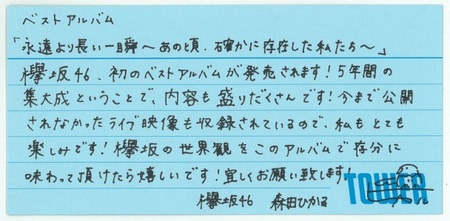 ベストアルバム
「永遠より長い一瞬〜あの頃、確かに存在した私たち〜」
欅坂46、初のベストアルバムが発売されます！5年間の
集大成ということで、内容も盛りだくさんです！今まで公開
されなかったライブ映像も収録されているので、私もとても
楽しみです！欅坂の世界観をこのアルバムで存分に
味わって頂けたら嬉しいです！宜しくお願い致します。
欅坂46 森田ひかる
TOWER